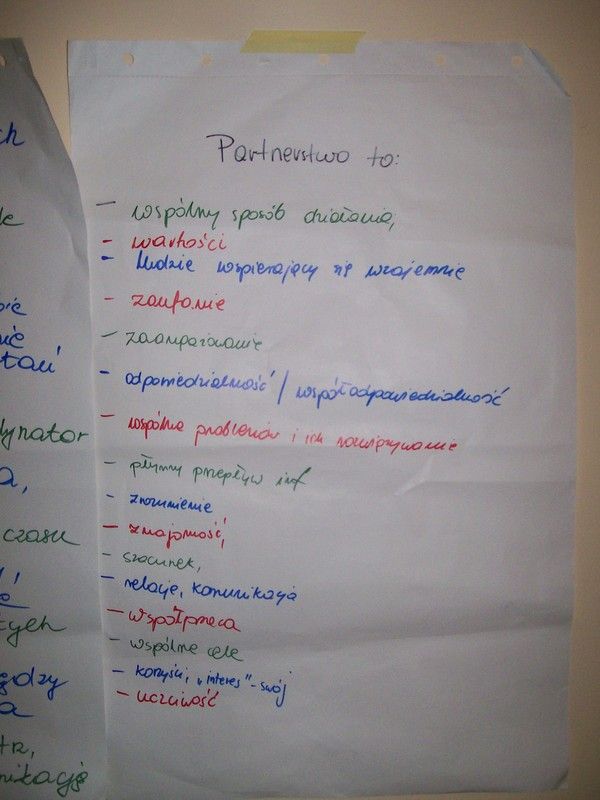 Partnerstwo to:
- wspólny sposób działania,
- wartości
- ludzie wspierający się wzajemnie
- zaufanie
- zaangażowanie
- odpowiedzialność / współodpowiedzialność
- wspólne problemów i ich rozwiązywanie
- płynny przepływ inf
- zrozumienie
- znajomość,
- szacunek,
- relacje, komunikacja
- współpraca
- wspólne cele
- korzyści, „interes" - swój
- uczciwość
ch
dynator
a,
czasu